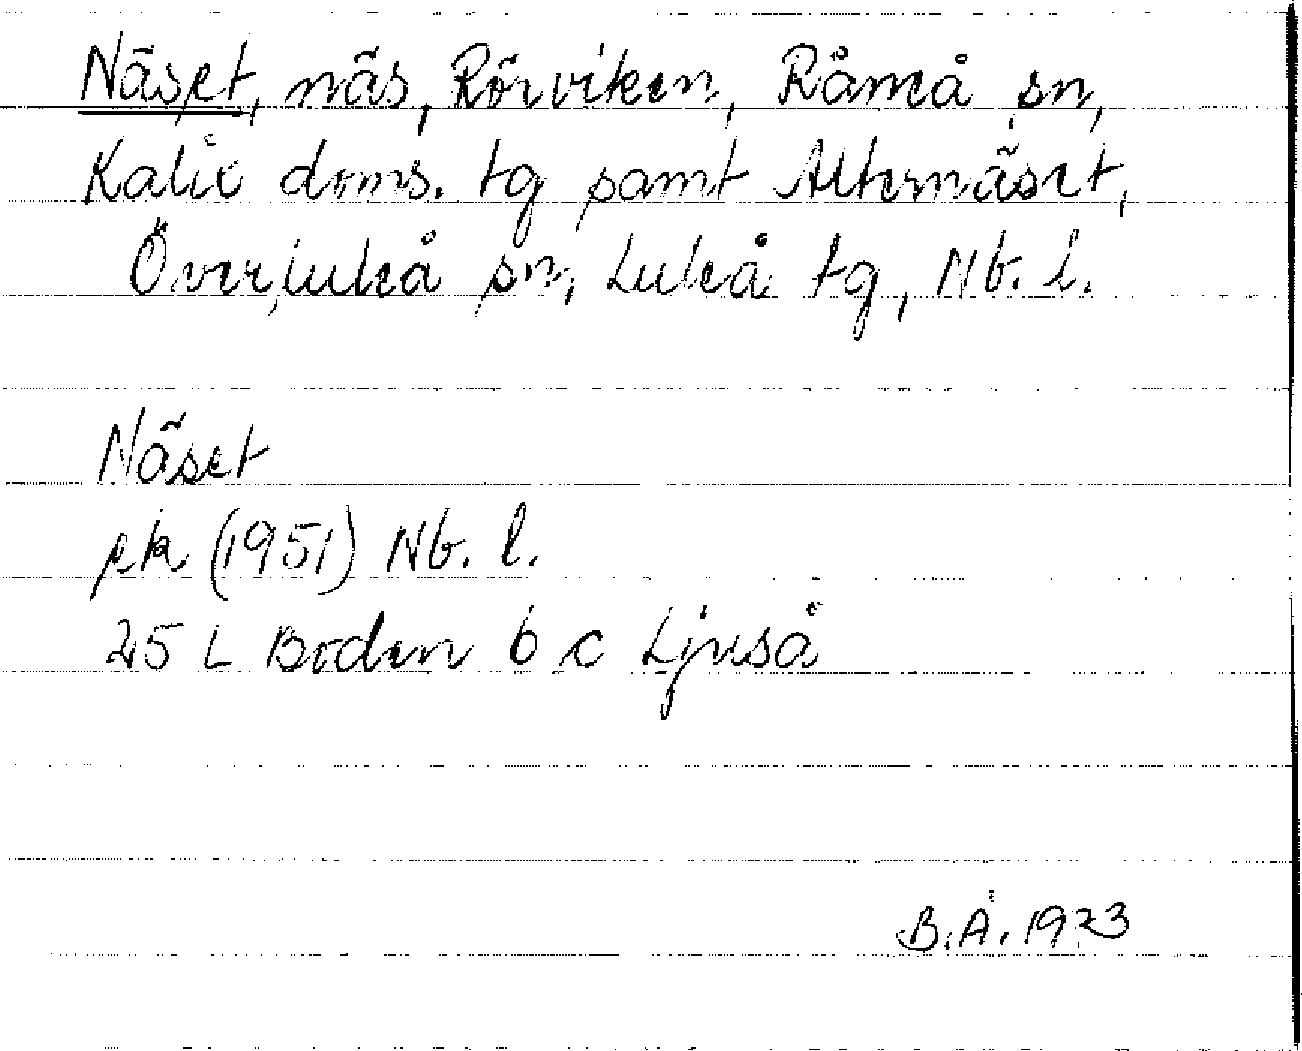 Näset, näs, Rörviken, Råneå sn,
Kalix doms. tg samt Alternäset,
Överluleå sn, Luleå tg, Nb. l.
Näset
ek (1951) Nb. l.
25 L Boden 6 c Ljuså
B.Å. 1973